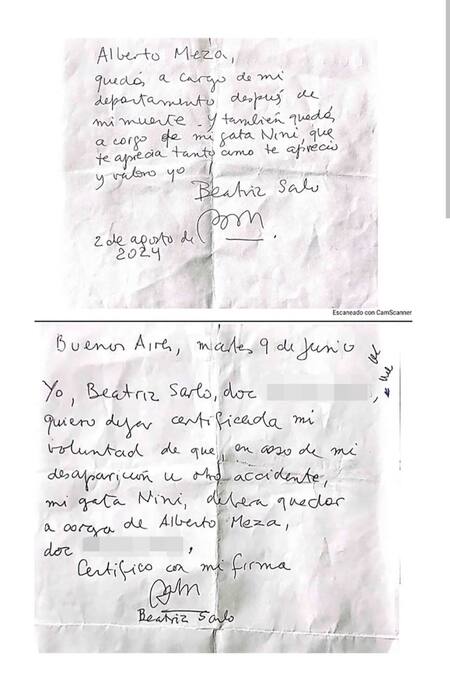 Alberto Meza,
quedás a cargo de mi
departamento después de
mi muerte. Y también quedás
a cargo de mi gata Nini, que
te aprecia tanto como te aprecio
y valoro yo
Beatriz Sarlo
2 de agosto de
2024
Escaneado con CamScanner
Buenos Aires, martes 9 de junio
Yo, Beatriz Sarlo, doc
quiero dejar certificada mi
voluntad de que, en caso de mi
desaparición u otro accidente,
mi gata Nini, deberá quedar
a cargo de Alberto Meza,
doc ,
Certifico con mi firma
Beatriz Sarlo